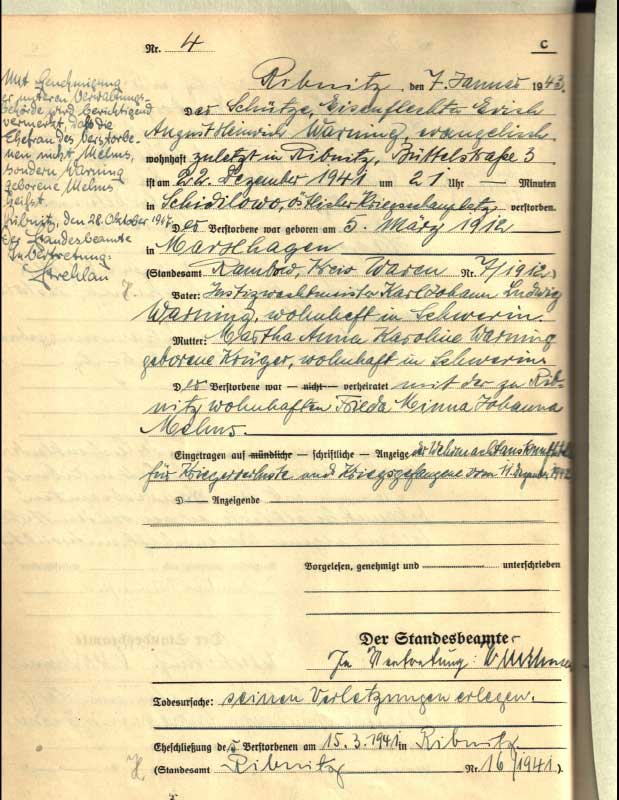 Nr. 4
C
Ribnitz, den 7. Januar 1943.
Mit Genehmigung
der unteren Verwaltungs-
behörde wird berichtigend
vermerkt, daß die
Ehefrau des Verstorbe-
nen nicht Melms,
sondern Warning
geborene Melms
heißt.
Ribnitz, den 28. Oktober 1947.
Der Standesbeamte
In Vertretung:
Strehlau
Der Schütze, Eisenflechter Erich
August Heinrich Warning, evangelisch
wohnhaft zuletzt in Ribnitz, Büttelstraße 3
ist am 22. Dezember 1941 um 21 Uhr — Minuten
in Schidilowo, östlicher Kriegsschauplatz, verstorben.
Der Verstorbene war geboren am 5. März 1912
in Marxhagen
(Standesamt Rambow, Kreis Waren Nr. 7/1912)
Vater: Justizwachtmeister Karl Johann Ludwig
Warning, wohnhaft in Schwerin.
Mutter: Martha Anna Karoline Warning
geborene Krüger, wohnhaft in Schwerin
Der Verstorbene war — nicht — verheiratet mit der zu Rib-
nitz wohnhaften Frieda Minna Johanna
Melms.
Eingetragen auf mündliche — schriftliche — Anzeige der Wehrmachtauskunftstelle
für Kriegerverluste und Kriegsgefangene vom 11. Dezember 1942
D — Anzeigende
Vorgelesen, genehmigt und unterschrieben
Der Standesbeamte
In Vertretung:
Todesursache: seinen Verletzungen erlegen.
Eheschließung des Verstorbenen am 15.3.1941 in Ribnitz
(Standesamt Ribnitz Nr. 16/1941).